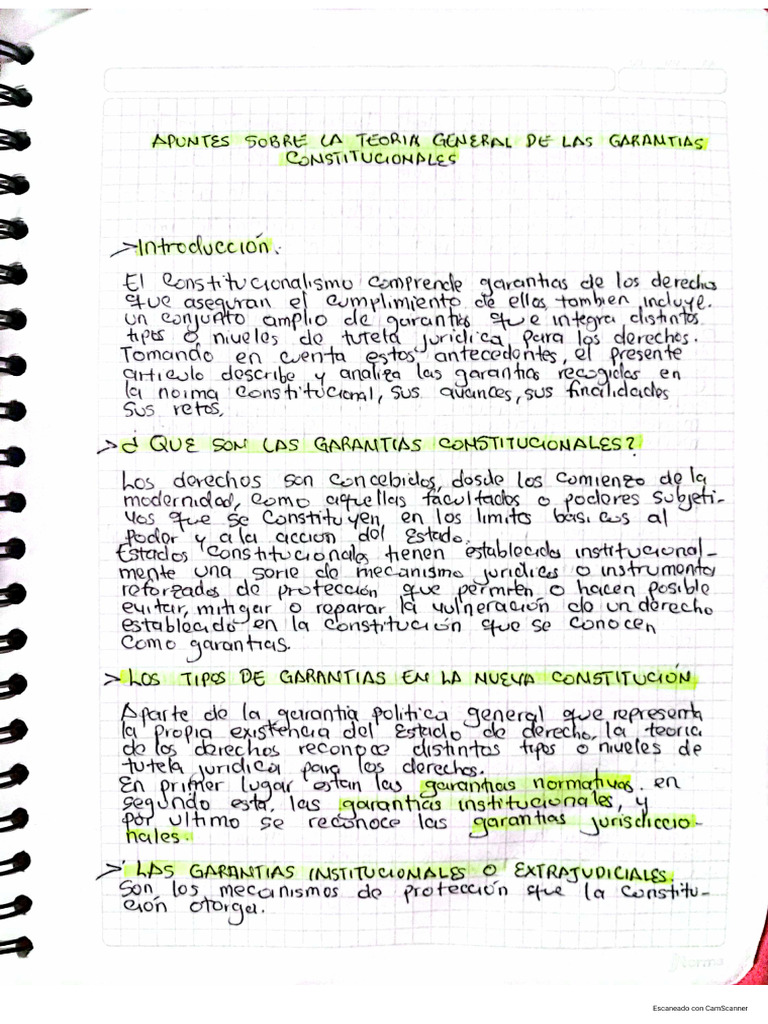 APUNTES SOBRE LA TEORIA GENERAL DE LAS GARANTIAS
CONSTITUCIONALES
> Introducción.
El Constitucionalismo comprende garantias de los derechos
que aseguran el cumplimiento de ellos tambien incluye.
un conjunto amplio de garantias que integra distintos
tipos o niveles de tutela jurídica para los derechos.
Tomando en cuenta estos antecedentes, el presente
articulo describe y analiza las garantias recogidas en
la norma Constitucional, sus avances, sus finalidades
sus retos.
> ¿ QUE SON LAS GARANTIAS CONSTITUCIONALES?
Los derechos son concebidos, desde los comienzo de la
modernidad, como aquellas facultades o poderes subjeti-
vos que se constituyen, en los limites basicos al
poder y a la accion del Estado.
Estados Constitucionales tienen establecido institucional-
mente una serie de mecanismo juridicos o instrumentos
reforzados de protección que permiten o hacen posible
evitar, mitigar o reparar la vulneración de un derecho
establecido en la constitución que se conocen
como garantias.
> LOS TIPOS DE GARANTIAS EN LA NUEVA CONSTITUCIÓN
Aparte de la garantia politica general que representa
la propia existencia del Estado de derecho, la teoria
de los derechos reconoce distintos tipos o niveles de
tutela juridica para los derechos.
En primer lugar estan las garantias normativas, en
segundo esta, las garantias institucionales, y
por ultimo se reconoce las garantias jurisdiccio-
nales.
> LAS GARANTIAS INSTITUCIONALES O EXTRAJUDICIALES.
Son, los mecanismos de protección que la constitu-
ción otorga.
Norma
Escaneado con CamScanner